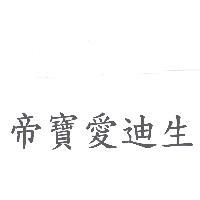 帝寶愛迪生